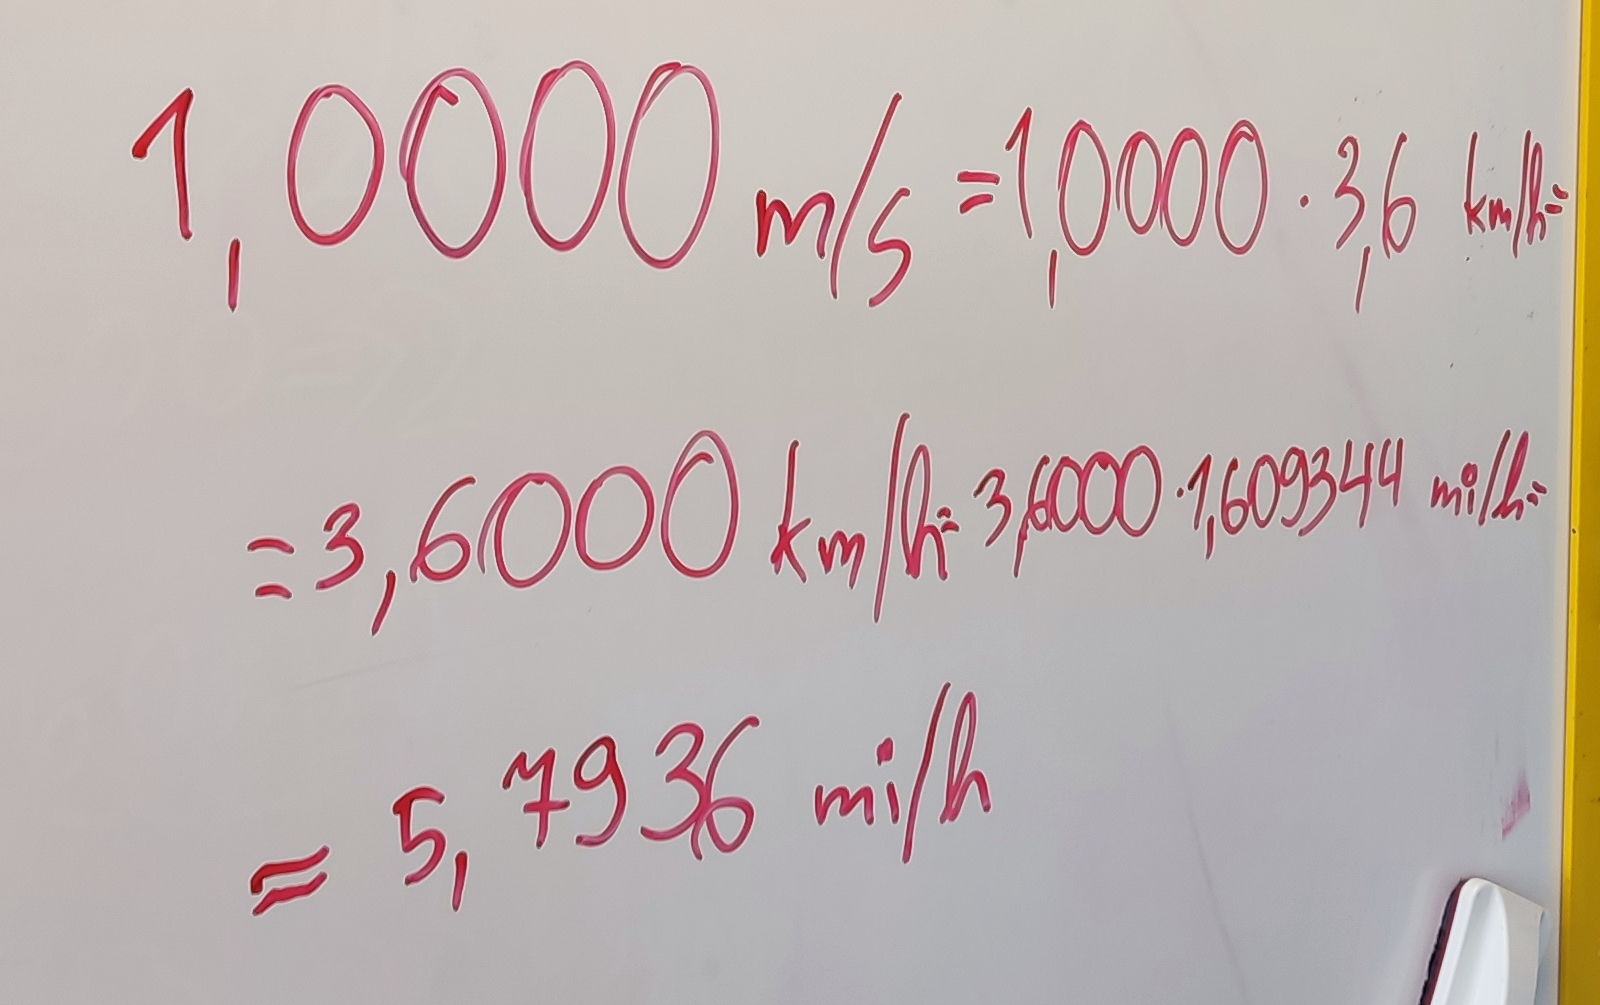 1,0000 m/s = 1,0000 · 3,6 km/h =
= 3,6000 km/h = 3,6000 · 1,609344 mi/h =
≈ 5,7936 mi/h